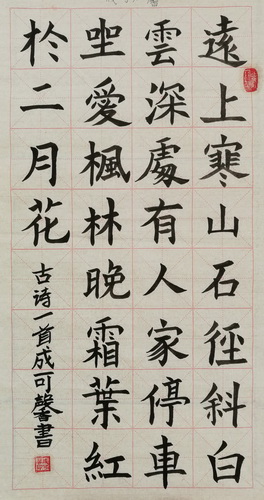 遠上寒山石徑斜白
雲深處有人家停車
坐愛楓林晚霜葉紅
於二月花
古诗一首成可馨書